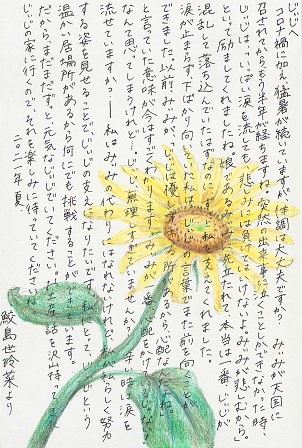 じぃじへ
コロナ禍に加え猛暑が続いていますが、体調は大丈夫ですか。みぃみが天国に
召されてからもう半年が経ちますね。突然の出来事に泣くことしかできなかった時
じぃじは、いっぱい涙を流しても、悲しみには負けてはいけないよ。みぃみが悲しむから。
といって励ましてくれましたね。娘であるみぃみに先立たれて、本当は一番じぃじが
混乱して落ち込んでいたはずなのに、私を支えてくれました。
涙が止まらず下ばかり向いていた私は、じぃじの言葉でまた前を向くことが
できました。以前みぃみが、じぃじは優しすぎる所があるから心配なんだね。
と言っていた意味が今はすごくわかります。みぃみが一番心配をかけているじゃない。
なんて思ってしまうけど…。じぃじ、無理しすぎていませんか。辛い時、涙を
流せていますか。――私はみぃみの代わりにはなれないけれど、私がらしく努力
する姿を見せることで、じぃじの支えになりたいです。私にとって、じぃじという
温かい居場所があるから何にでも挑戦することができています。
だから、まだまだずっと元気なじぃじでいてください。お土産話を沢山持って
じぃじの家に行くので、それを楽しみに待っていてくださいね。
二〇二一年 夏
鮫島世玲菜より